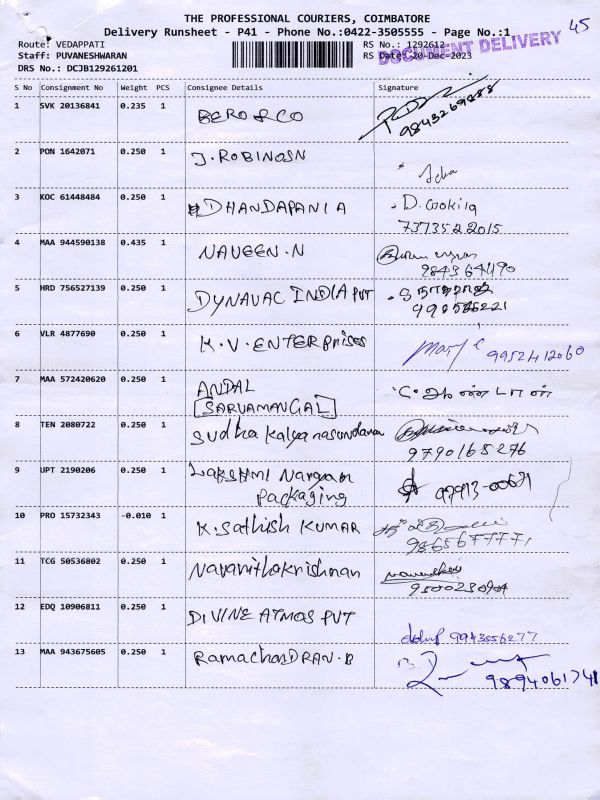 45
THE PROFESSIONAL COURIERS, COIMBATORE
Delivery Runsheet - P41 - Phone No.:0422-3505555 - Page No.:1
Route: VEDAPPATI RS No.: 1292612
Staff: PUVANESHWARAN RS Date: 20-Dec-2023
DOCUMENT DELIVERY
DRS No.: DCJB129261201
S No Consignment No Weight PCS Consignee Details Signature
1 SVK 20136841 0.235 1 BERO & CO
9843269888
2 PON 1642071 0.250 1 J. ROBINOSN
3 KOC 61448484 0.250 1 DHANDAPANI A D. Gokila
7373522015
4 MAA 944590138 0.435 1 NAVEEN.N
984364490
5 HRD 756527139 0.250 1 DYNAVAC INDIA PVT
6 VLR 4877690 0.250 1 K.V. ENTERPRISES
9952412060
7 MAA 572420620 0.250 1 ANDAL
[SARVAMANGAL]
8 TEN 2080722 0.250 1 Sudha Kalyanasundaram
9790165276
9 UPT 2190206 0.250 1 Lakshmi Narayan
Packaging
10 PRO 15732343 -0.010 1 K. Sathish KUMAR
11 TCG 50536802 0.250 1 Navanithakrishnan
9500230904
12 EDQ 10906811 0.250 1 DIVINE ATMOS PVT
9943556277
13 MAA 943675605 0.250 1 RamachanDRAN.B
9894061741